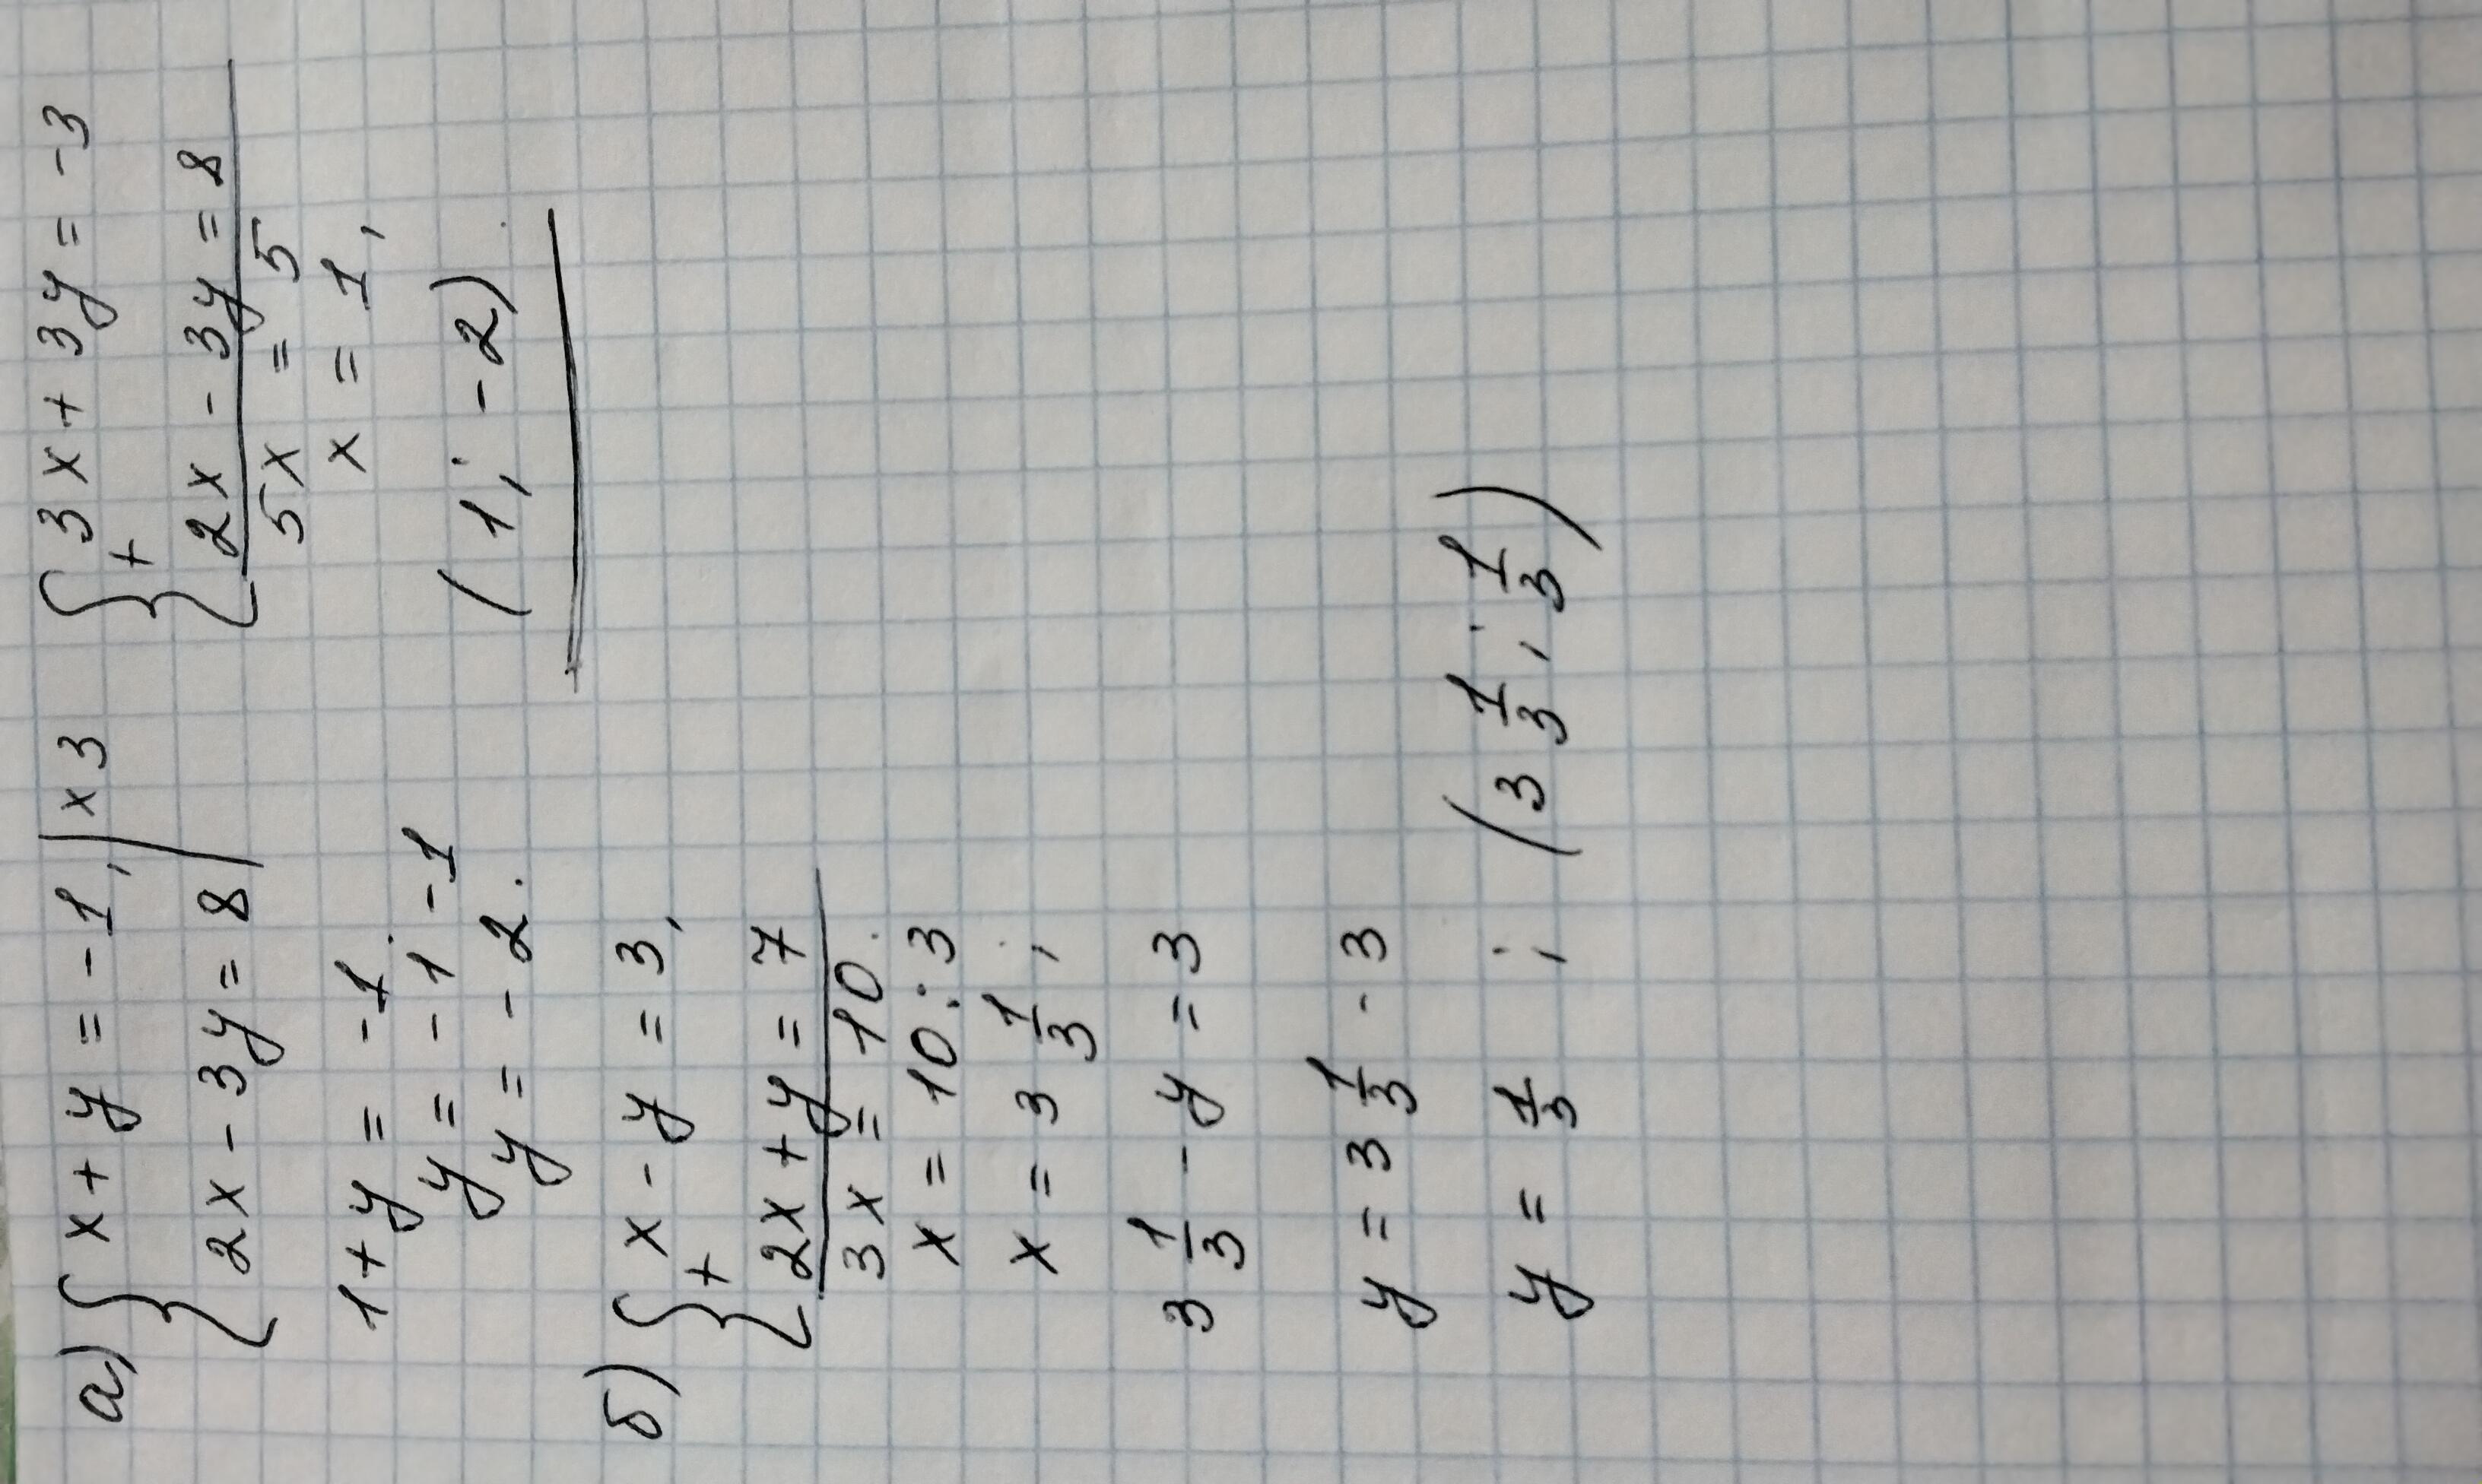 а) { x + y = -1, | x 3 { 3x + 3y = -3
+
2x - 3y = 8 2x - 3y = 8
5x = 5
1 + y = -1 x = 1,
y = -1 -1
y = -2. (1; -2)
б) { x - y = 3,
+
2x + y = 7
3x = 10.
x = 10 : 3
x = 3 1/3 ;
3 1/3 - y = 3
y = 3 1/3 - 3
y = 1/3 ; (3 1/3 ; 1/3)